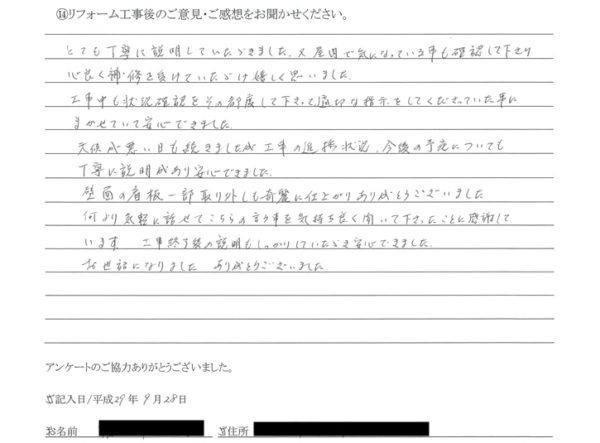 ⑭リフォーム工事後のご意見・ご感想をお聞かせください。
とても丁寧に説明していただきました。又屋内で気になっている事も確認して下さり
心良く補修を受けていただけ嬉しく思いました。
工事中も状況確認をその都度して下さって適切な指示をしてくださっていた事に
まかせていて安心できました。
天候が悪い日も続きましたが工事の進捗状況、今後の予定についても
丁寧に説明があり安心できました。
壁面の看板一部取り外しも綺麗に仕上がりありがとうございました
何より気軽に話せてこちらの言う事を気持ち良く聞いて下さったことに感謝して
います 工事終了後の説明もしっかりしていただき安心できました。
お世話になりました ありがとうございました
アンケートのご協力ありがとうございました。
ご記入日/平成29年9月28日
お名前 ご住所